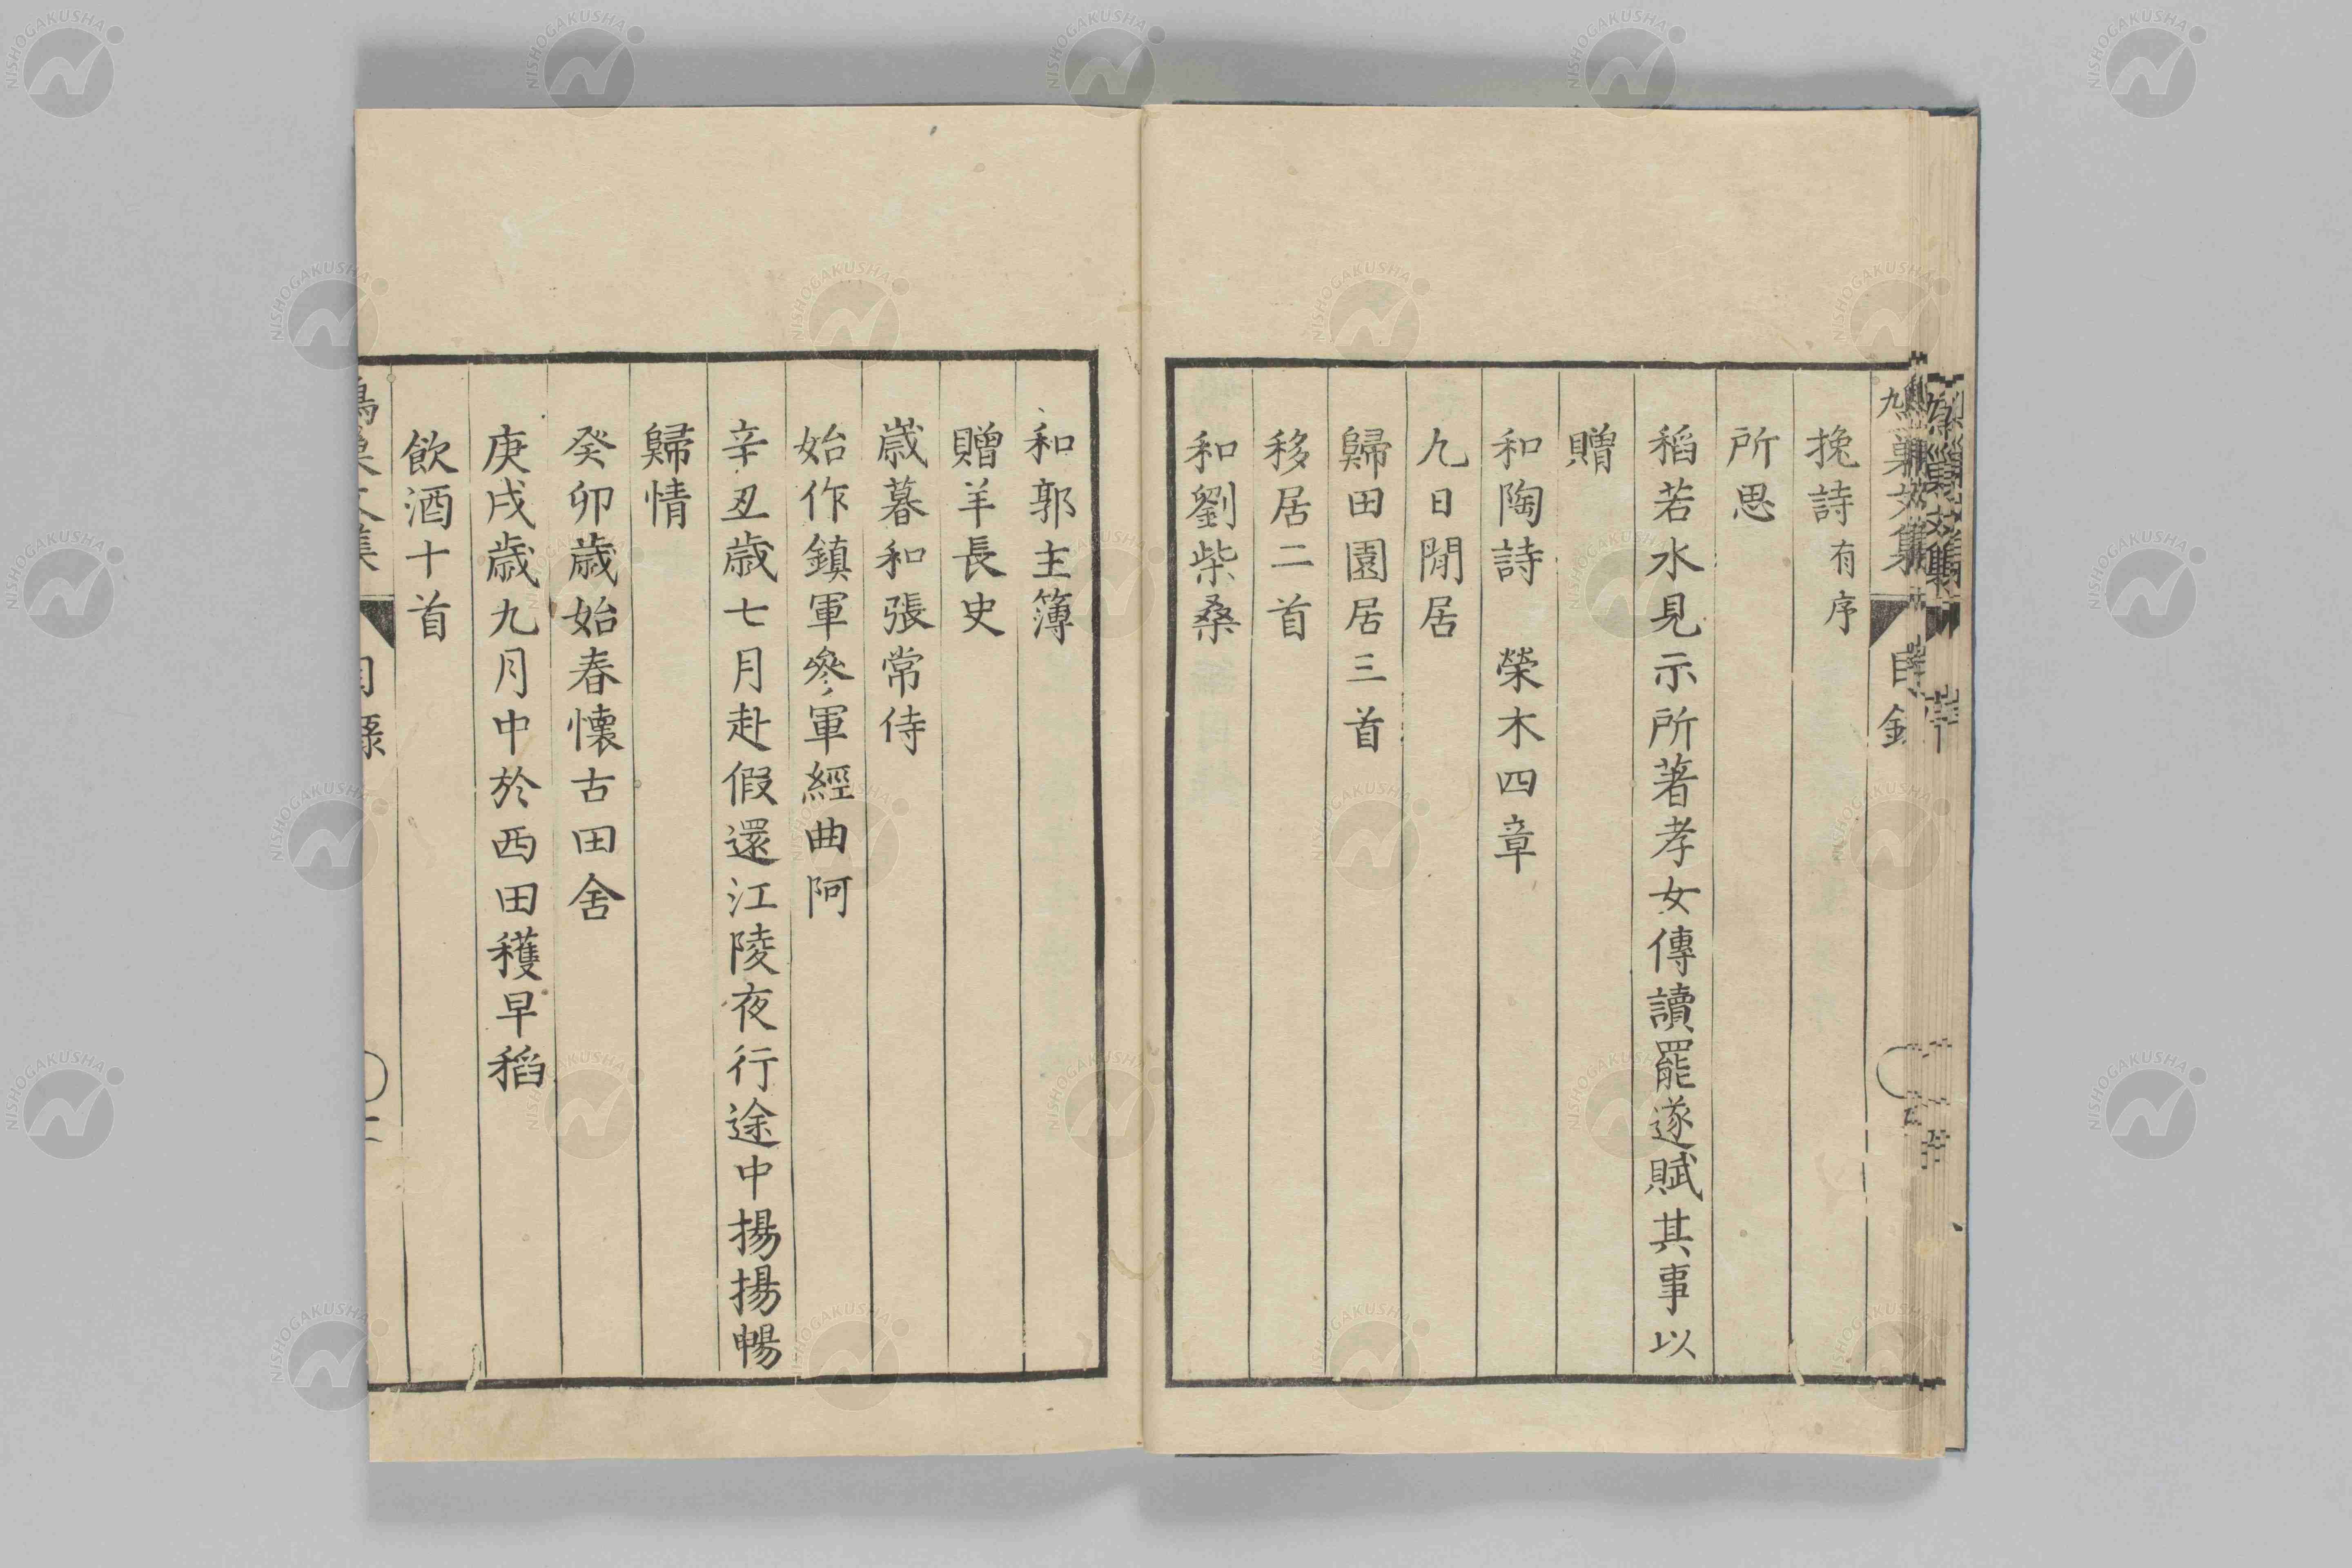 挽詩有序
所思
稻若水見示所著孝女傳讀罷遂賦其事以
贈
和陶詩　榮木四章
九日閒居
歸田園居三首
移居二首
和劉柴桑
和郭主簿
贈羊長史
歳暮和張常侍
始作鎮軍參軍經曲阿
辛丑歳七月赴假還江陵夜行途中揚揚暢
歸情
癸卯歳始春懷古田舍
庚戌歳九月中於西田穫早稻
飲酒十首
目錄